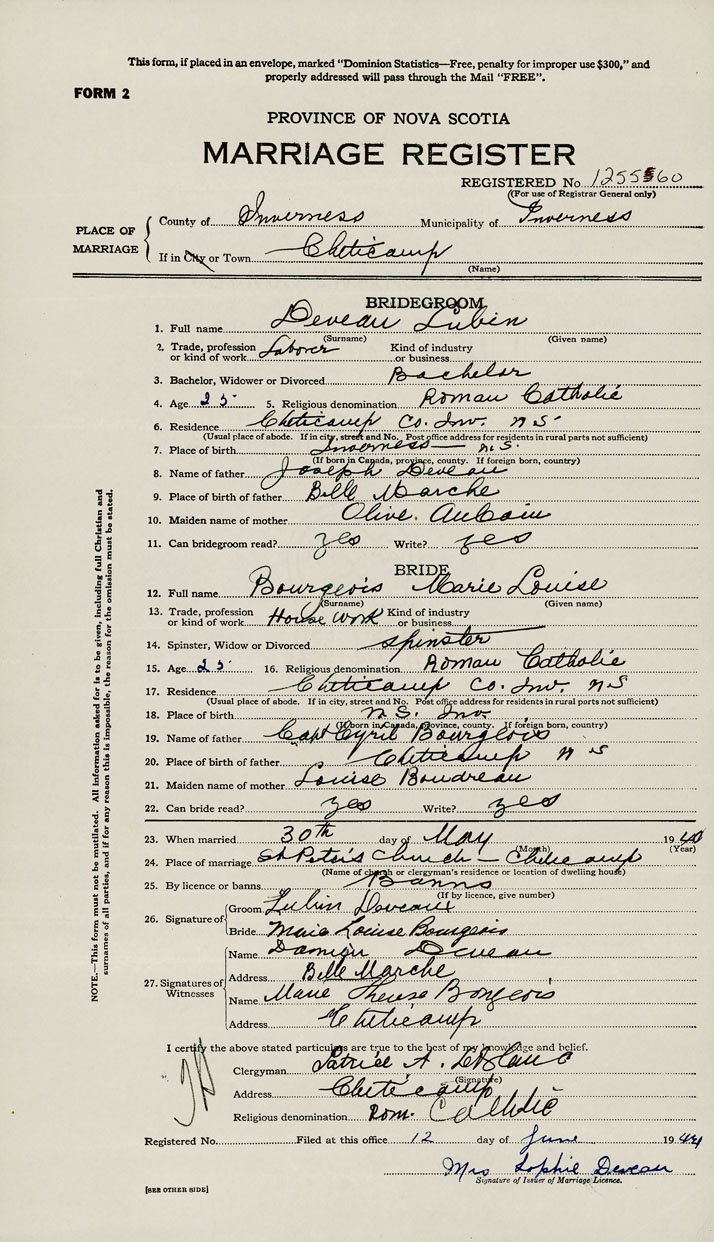 This form, if placed in an envelope, marked "Dominion Statistics—Free, penalty for improper use $300," and
properly addressed will pass through the Mail "FREE".
FORM 2
PROVINCE OF NOVA SCOTIA
MARRIAGE REGISTER
REGISTERED No. 1255 60
(For use of Registrar General only)
PLACE OF MARRIAGE
County of Inverness Municipality of Inverness
If in City or Town Cheticamp
(Name)
BRIDEGROOM
1. Full name Deveau Lubin
(Surname) (Given name)
2. Trade, profession or kind of work Laborer Kind of industry or business
3. Bachelor, Widower or Divorced Bachelor
4. Age 25 5. Religious denomination Roman Catholic
6. Residence Cheticamp Co. Inv. N S
(Usual place of abode. If in city, street and No. Post office address for residents in rural parts not sufficient)
7. Place of birth Inverness — N.S.
(If born in Canada, province, county. If foreign born, country)
8. Name of father Joseph Deveau
9. Place of birth of father Belle Marche
10. Maiden name of mother Olive AuCoin
11. Can bridegroom read? yes Write? yes
BRIDE
12. Full name Bourgeois Marie Louise
(Surname) (Given name)
13. Trade, profession or kind of work House work Kind of industry or business
14. Spinster, Widow or Divorced spinster
15. Age 25 16. Religious denomination Roman Catholic
17. Residence Cheticamp Co. Inv. N S
(Usual place of abode. If in city, street and No. Post office address for residents in rural parts not sufficient)
18. Place of birth N.S. Inv.
(If born in Canada, province, county. If foreign born, country)
19. Name of father Capt Cyril Bourgeois
20. Place of birth of father Cheticamp N S
21. Maiden name of mother Louise Boudreau
22. Can bride read? yes Write? yes
23. When married 30th day of May 19
(Month) (Year)
24. Place of marriage St Peter's Church — Cheticamp
(Name of church or clergyman's residence or location of dwelling house)
25. By licence or banns Banns
(If by licence, give number)
26. Signature of
Groom Lubin Deveau
Bride Marie Louise Bourgeois
27. Signatures of Witnesses
Name Damien Deveau
Address Belle Marche
Name Marie Therese Bourgeois
Address Cheticamp
I certify the above stated particulars are true to the best of my knowledge and belief.
Clergyman Patrice A. LeBlanc
(Signature)
Address Cheticamp
Religious denomination Rom. Catholic
Registered No. Filed at this office 12 day of June 19 44
Mrs Sophie Deveau
Signature of Issuer of Marriage Licence.
[SEE OTHER SIDE]
NOTE.—This form must not be mutilated. All information asked for is to be given, including full Christian and
surnames of all parties, and if for any reason this is impossible, the reason for the omission must be stated.